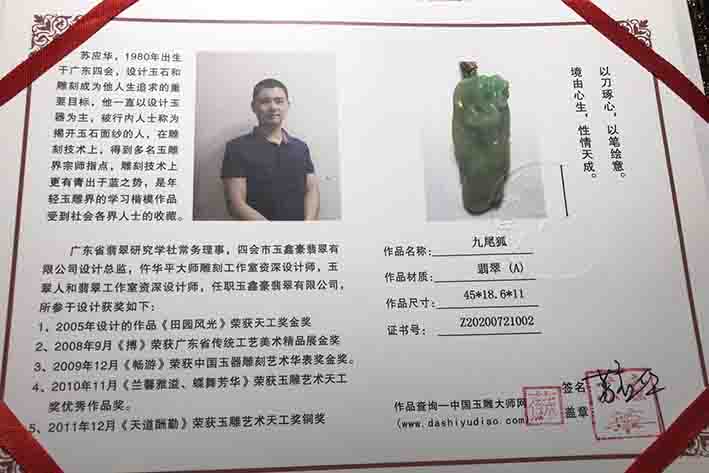 苏应华，1980年出生
于广东四会，设计玉石和
雕刻成为他人生追求的重
要目标，他一直以设计玉
器为主，被行内人士称为
揭开玉石面纱的人，在雕
刻技术上，得到多名玉雕
界宗师指点，雕刻技术上
更有青出于蓝之势，是年
轻玉雕界的学习楷模作品
受到社会各界人士的收藏。
以刀琢心，以笔绘意。
境由心生，性情天成。
广东省翡翠研究学社常务理事，四会市玉鑫豪翡翠有
限公司设计总监，仵华平大师雕刻工作室资深设计师，玉
翠人和翡翠工作室资深设计师，任职玉鑫豪翡翠有限公司，
所参于设计获奖如下：
1、2005年设计的作品《田园风光》荣获天工奖金奖
2、2008年9月《搏》荣获广东省传统工艺美术精品展金奖
3、2009年12月《畅游》荣获中国玉器雕刻艺术华表奖金奖。
4、2010年11月《兰馨雅溢、蝶舞芳华》荣获玉雕艺术天工
奖优秀作品奖。
5、2011年12月《天道酬勤》荣获玉雕艺术天工奖铜奖
作品名称：九尾狐
作品材质：翡翠（A）
作品尺寸：45*18.6*11
证书号：Z20200721002
作品查询—中国玉雕大师网
(www.dashiyudiao.com)
签名
盖章